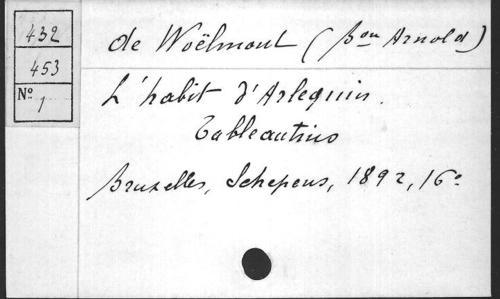 432
453
Nº 1
de Woëlmont (Bon Arnold)
L'habit d'Arlequin.
Tableautins
Bruxelles, Schepens, 1892, 16º